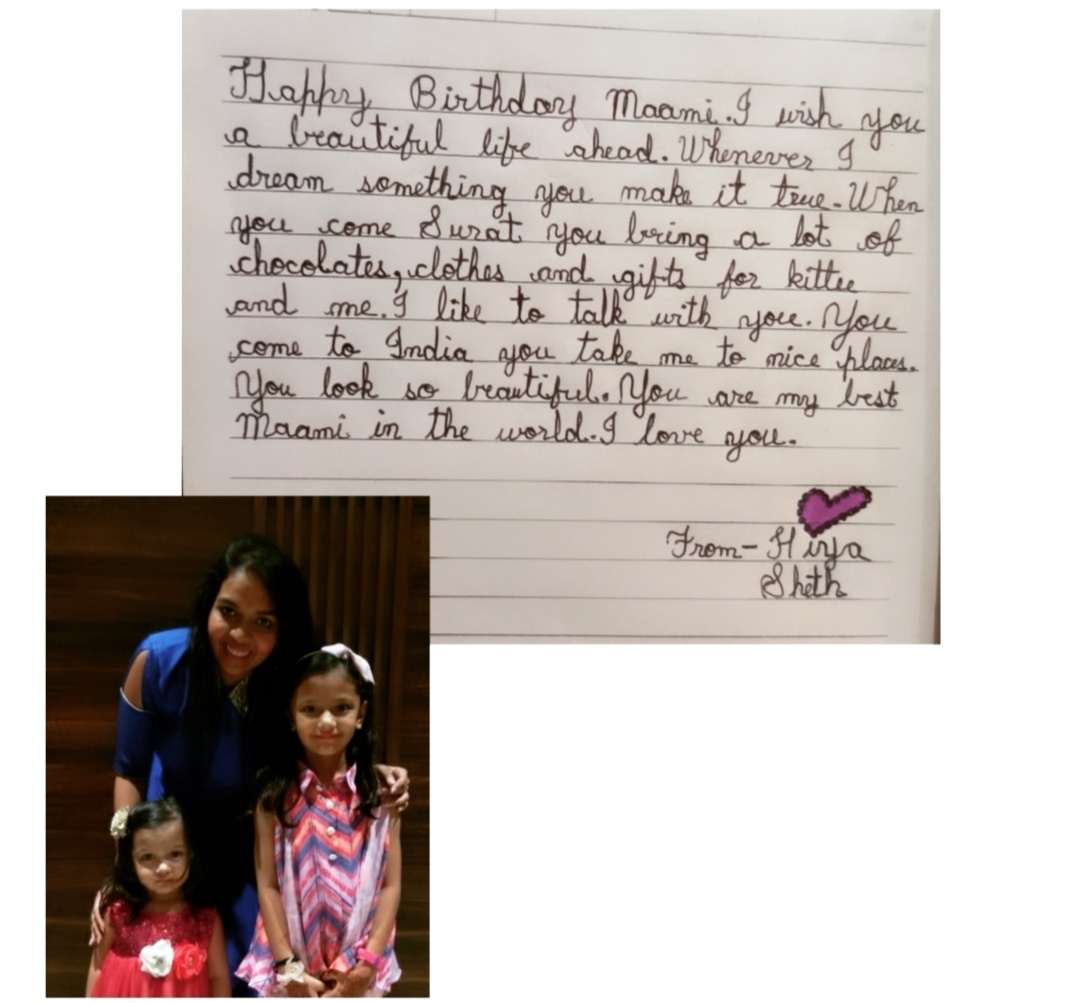 Happy Birthday Maami. I wish you
a beautiful life ahead. Whenever I
dream something you make it true. When
you come Surat you bring a lot of
chocolates, clothes and gifts for kittee
and me. I like to talk with you. You
come to India you take me to nice places.
You look so beautiful. You are my best
Maami in the world. I love you.
From- Hiya
Sheth